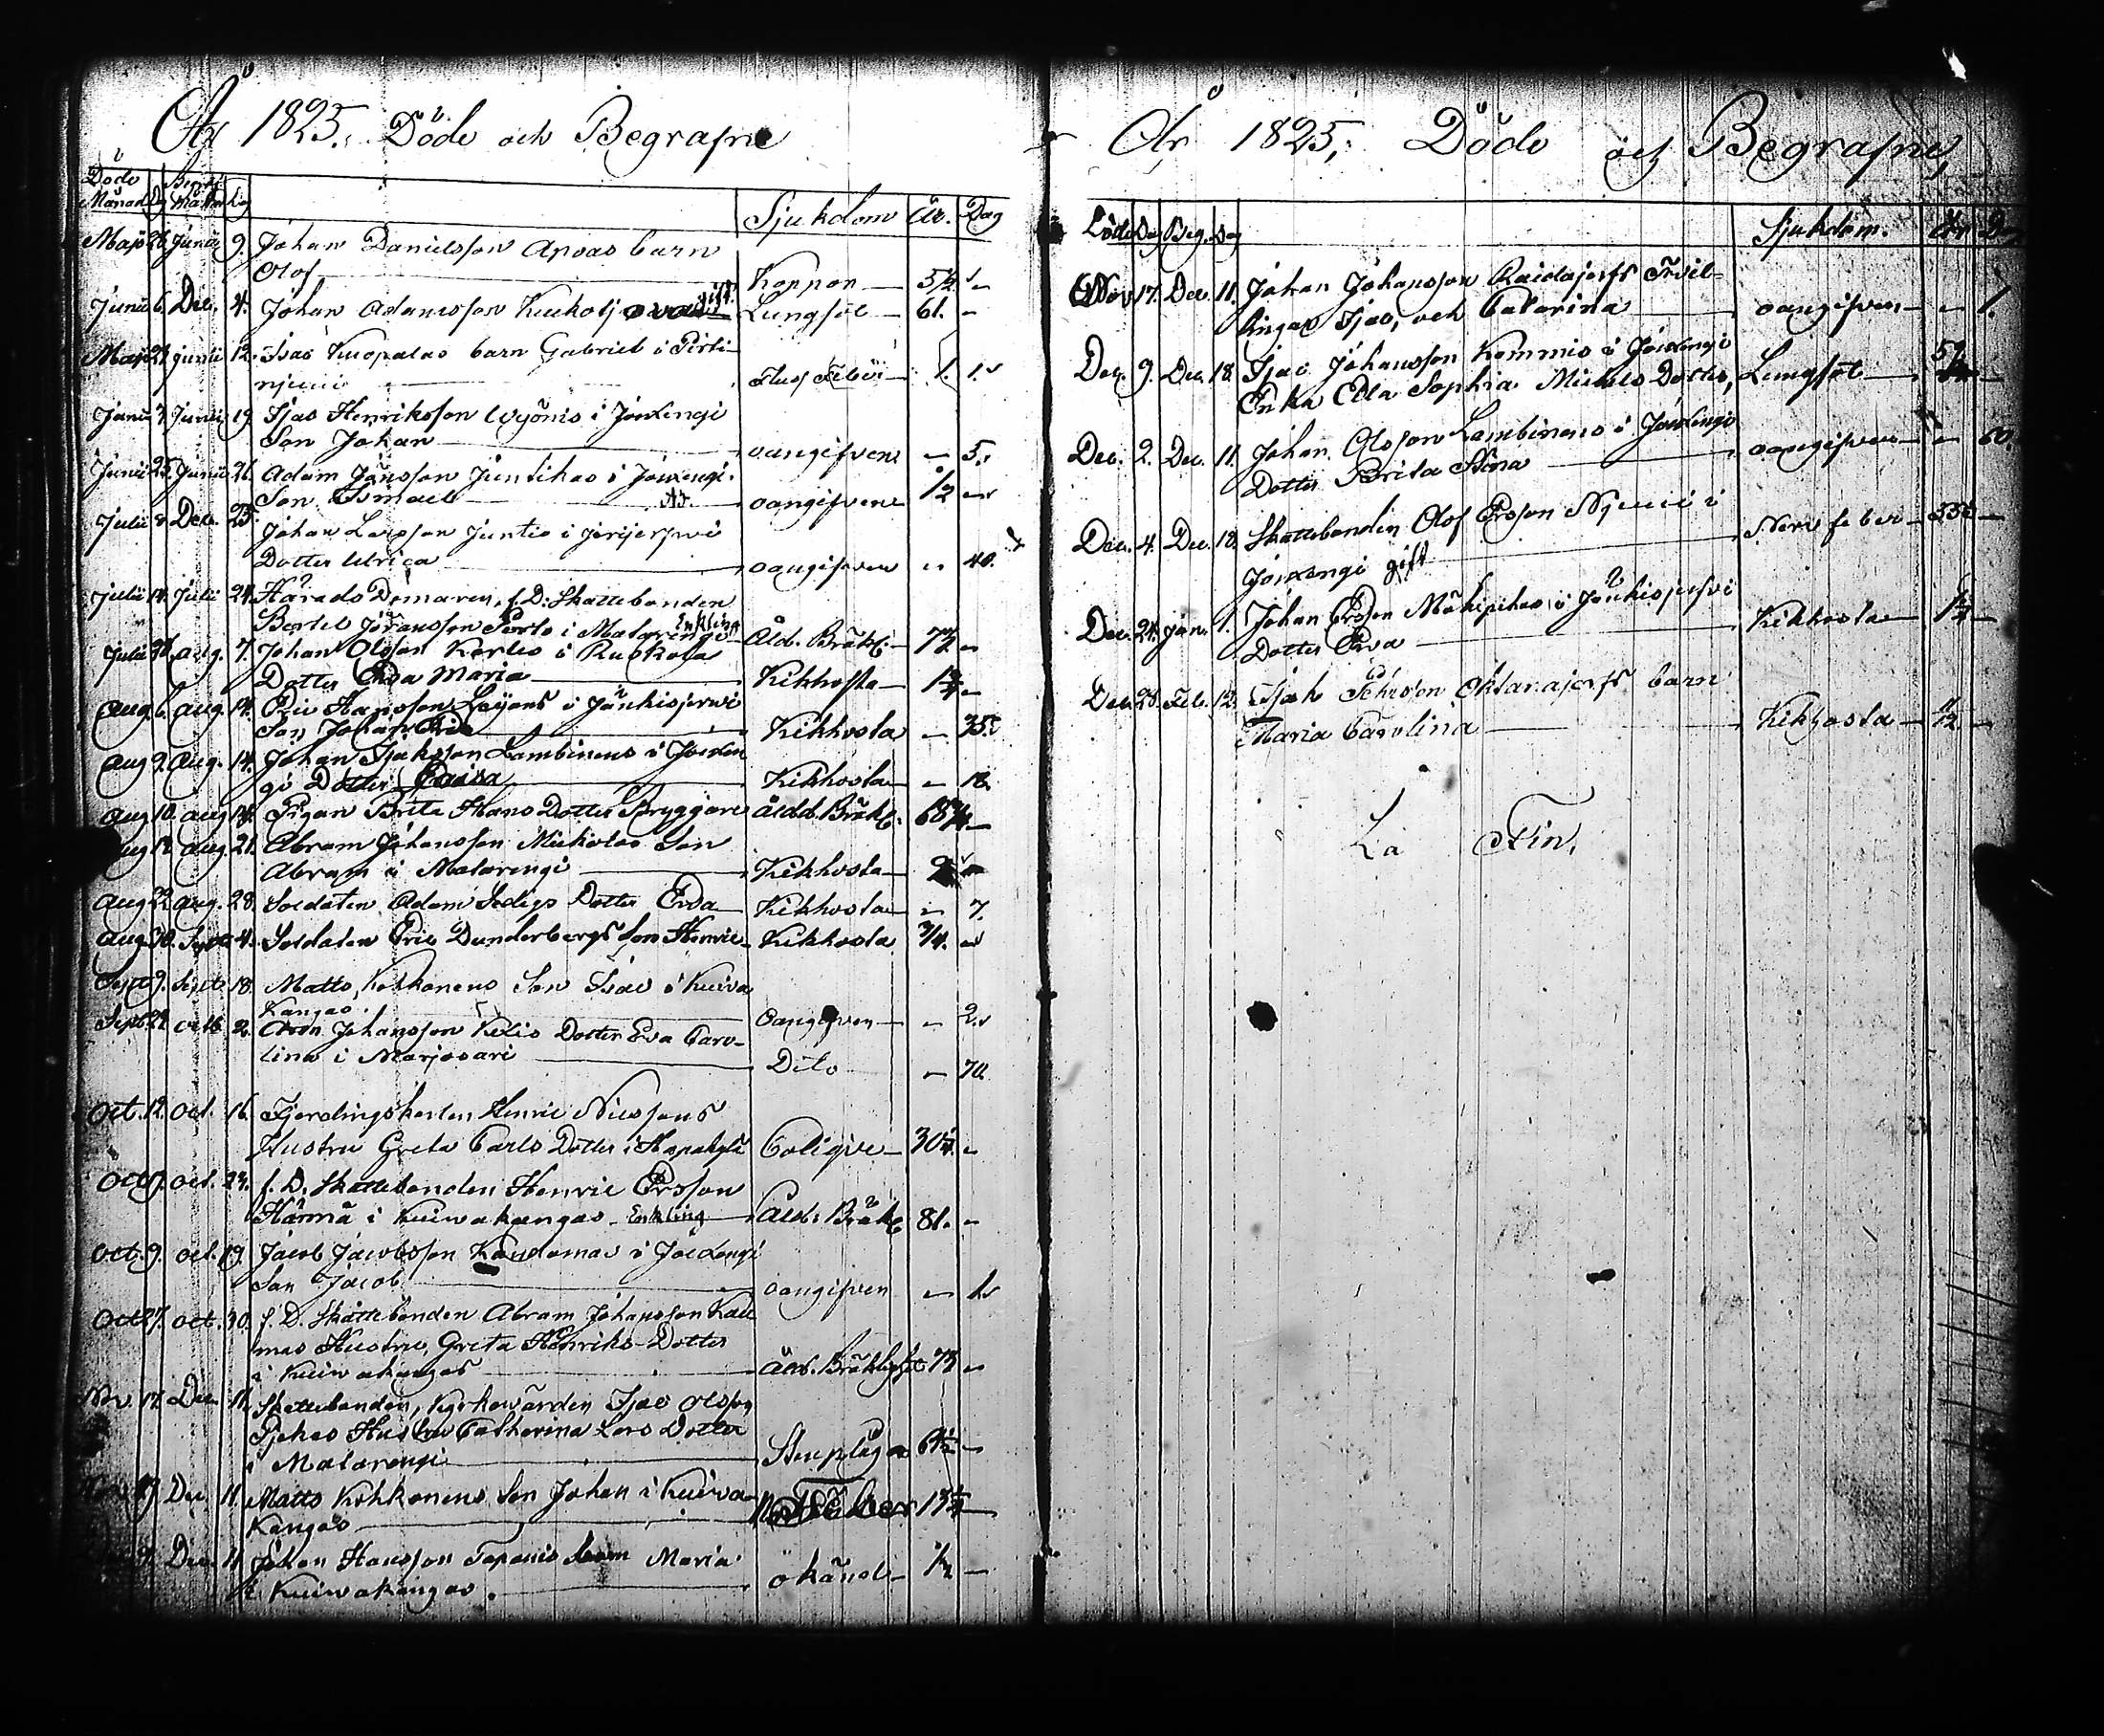 År 1825. Döde och Begrafne
Döde Begr:
Månad Dag Månad Dag Sjukdom År. Dag
Maji 26 Junii 9. Johan Danielsson Arvas barn
Olof Koppor 5/12
Junii 6 Dec. 4. Johan Adamsson Kuckoj gift. Lungsot 61.
Maji 24 Junii 12. Isac Knopalas barn Gabriel i
Fluss Feber 1. 1.
Junii Junii 19 Isac Henriksson Wyönis i Jouxengi
Son Johan oangifven 5.
Junii 25 Junii 26. Adam Jönsson Juntikas i Jouxengi
Son Ismael oangifven 1/2
Julii 8 Dec. 25. Johan Larsson Juntis i Jerijerfwi
Dotter Ulrica oangifven 40.
Julii 14. Julii 24. Härads Domaren, f.D. Skattebonden
Bertel Göransson i Matarengi Enkling Åld. Bräkl. 73
Julii aug. 7. Johan Olsson Kerttus i Ruskola
Dotter Eva Maria Kikhosta 1 3/4
aug 6. aug. 14. Eric Hansson Leijons i Jänkisjerwi
Son Johan Eric Kikhosta 35.
aug 9. aug. 14. Johan Isaksson Lambinens i Jouxen
gi Dotter Kikhosta 18.
aug 10. aug 14. Pigan Brita Hans Dotter Bryggare åldd. Bräkl. 68
aug 12. aug. 21. Abram Johansson Mickolas Son
Abram i Matarengi Kikhosta
aug 22 aug. 28. Soldaten Adam Sedigs Dotter Eva Kikhosta 7.
aug 30. Sept. 4. Soldaten Eric Dunderbergs Son Henric Kikhosta 3/4.
Sept 9. Sept 18. Matts Kokkonens Son Isac i Kuiva
Kangas oangifven 2.
Sept 22 octb. 2. Aron Johansson Kelis Dotter Eva Caro-
lina i Marjosari Dito 70.
Oct. 12. Oct. 16. Fjerdingskarlen Henric Nilssons
Hustru Greta Carls Dotter i Hapakylä Colique 30 1/4.
Oct. oct. 23. f.D. Skattebonden Henric Ersson
Hannu i Kuiwakangas Enkling Åld. Bräkl. 81.
Oct. 9. oct. 19. Jacob Jacobsson i Jouxengi
Son Jacob oangifven 1.
Oct 27. oct. 30. f.D. Skattebonden Abram Johansson Kau
mas Hustru, Greta Henriks-Dotter
i Kuiwakangas Åld. Bräklighet 73
Nov. 17. Dec. 11. Skattebonden, Kyrkowärden Isac Olsson
Pekas Hustru Catharina Lars Dotter
i Matarengi Stenplåga
Dec. 11. Matts Kokkonens Son Johan i Kuiva-
Kangas Feber
Dec. 11. Johan Hansson Tapanis barn Maria
i Kuiwakangas. okänd 1/2
År 1825, Döde och Begrafne,
Döde Dag Beg. Dag Sjukdom. År D
Nov 17. Dec. 11. Johan Johansson Raidajerfs Tvil-
lingar Isac, och Catarina oangifven 1.
Dec. 9. Dec. 18. Isac Johansson Kommis i Jouxengi
Enka Eda Sophia Mickels Dotter, Lungsot
Dec. 2. Dec. 11. Johan Olsson Lambinens i Jouxengi
Dotter Brita Stina oangifven 60.
Dec. 4. Dec. 18. Skattebonden Olof Ersson Njuu i
Jouxengi gift Nervfeber
Dec. 24. Jan. 1. Johan Ersson Mäkipikas i Jänkisjerfvi
Dotter Eva Kikhosta
Dec. 28. Feb. 12. Isak Pehrsson barn
Maria Carolina Kikhosta
La Fin.